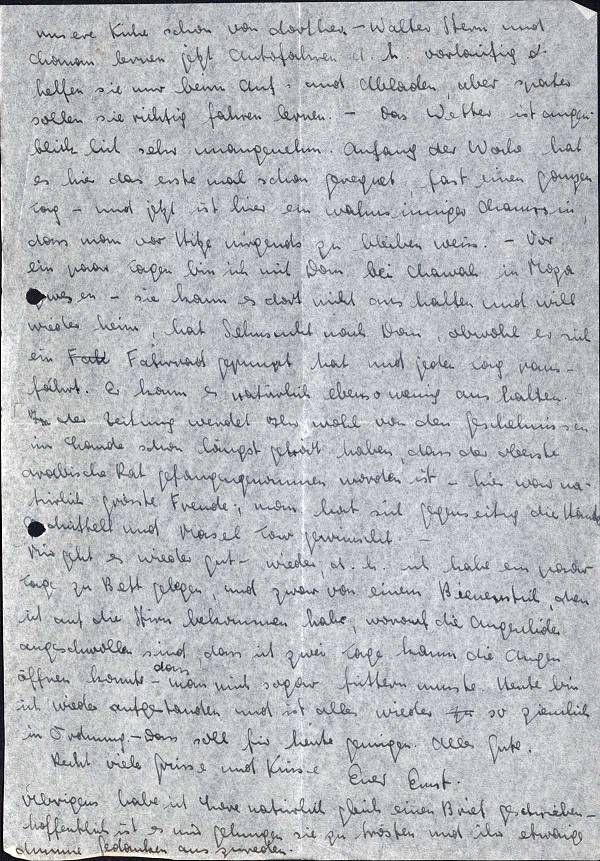 unsere Kühe schon von dorther. - Walter Stern und
lernen jetzt Autofahren d. h. vorläufig
helfen sie nur beim Auf- und Abladen, aber später
sollen sie richtig fahren lernen. - Das Wetter ist augen-
blicklich sehr unangenehm. Anfang der Woche hat
es hier das erste mal schon geregnet, fast einen ganzen
Tag - und jetzt ist hier ein wahnsinniger Chamssin,
dass man vor Hitze nirgends zu bleiben weiss. - Vor
ein paar Tagen bin ich mit Dan bei Chawah in Moza
gewesen - sie kann es dort nicht aushalten und will
wieder heim, hat Sehnsucht nach Dan, obwohl er sich
ein Fahrrad gepumpt hat und jeden Tag raus-
fährt. Er kann es natürlich ebenso wenig aushalten.
In der Zeitung werdet Ihr wohl von den Geschehnissen
im Lande schon längst gehört haben, dass der oberste
arabische Rat gefangengenommen worden ist - hier war na-
türlich grösste Freude, man hat sich gegenseitig die Hände
geschüttelt und Masel tow gewünscht. -
Mir geht es wieder gut - wieder, d. h. ich habe ein paar
Tage zu Bett gelegen, und zwar von einem Bienenstich, den
ich auf die Stirn bekommen habe, worauf die Augenlider
angeschwollen sind, dass ich zwei Tage kaum die Augen
öffnen konnte - dass man mich sogar füttern musste. Heute bin
ich wieder aufgestanden und ist alles wieder so ziemlich
in Ordnung. - Dass soll für heute genügen. Alles Gute.
Recht viele Grüsse und Küsse Euer Ernst.
Uebrigens habe ich natürlich gleich einen Brief geschrieben -
hoffentlich ist es mir gelungen sie zu trösten und ihr etwaige
dumme Gedanken auszureden.